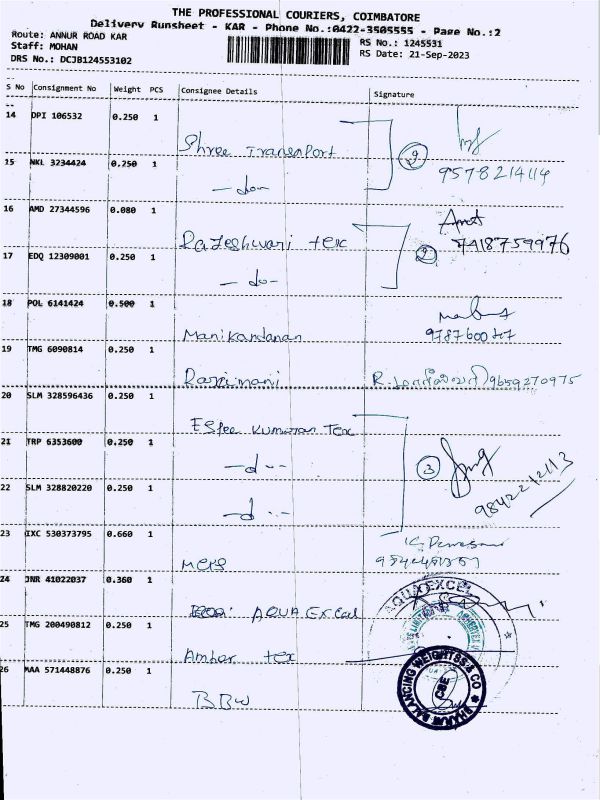 THE PROFESSIONAL COURIERS, COIMBATORE
Delivery Runsheet - KAR - Phone No.:0422-3505555 - Page No.:2
Route: ANNUR ROAD KAR
Staff: MOHAN
DRS No.: DCJB124553102
RS No.: 1245531
RS Date: 21-Sep-2023
S No Consignment No Weight PCS Consignee Details Signature
14 DPI 106532 0.250 1 Shree Transport
15 NKL 3234424 0.250 1 -do- 2 9578214114
16 AMD 27344596 0.080 1 Rajeshwari tex 7418759976
17 EDQ 12309001 0.250 1 -do- 2
18 POL 6141424 0.500 1 Manikandanan
19 TMG 6090814 0.250 1 Rasimani R. 9659270975
20 SLM 328596436 0.250 1 Esfee Kumaran Tex
21 TRP 6353600 0.250 1 -d-- 3
22 SLM 328820220 0.250 1 -d-- 9842212113
23 IXC 530373795 0.660 1
24 JNR 41022037 0.360 1 AQUA Excel
25 TMG 200490812 0.250 1 Amber tex
26 MAA 571448876 0.250 1 BBW
AQUA EXCEL
BALANCING WEIGHTSS & CO
CBE